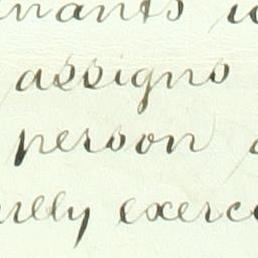 nants
assigns
person
erily exerc